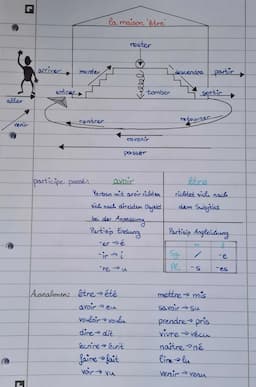 la maison "être"
rester
arriver
monter
descendre
partir
entrer
tomber
sortir
aller
venir
rentrer
retourner
revenir
passer
participe passé:
avoir
être
Verben mit avoir richten
sich nach direktem Objekt
bei der Anpassung
richtet sich nach
dem Subjekt
Partizip Endung
-er → é
-ir → i
-re → u
Partizip Angleichung
Sg. / -e
Pl. -s -es
Ausnahmen:
être → été
avoir → eu
vouloir → voulu
dire → dit
écrire → écrit
faire → fait
voir → vu
mettre → mis
savoir → su
prendre → pris
vivre → vécu
naître → né
lire → lu
venir → venu